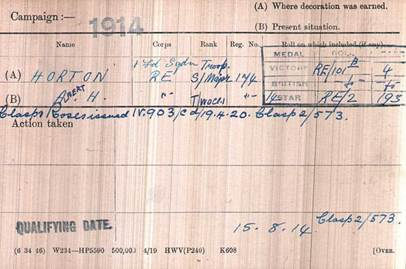 (A) Where decoration was earned.
Campaign :— 1914
(B) Present situation.
Name Corps Rank Reg. No. Roll on which included (if any)
MEDAL ROLL
(A) HORTON 1 Fd Sqdn R.E. Troop S/Major 174 VICTORY RE/101 B 4
BRITISH
(B) H. " 14 STAR RE/2 193
Clasp & Roses issued IV.903/Cd/19.4.20. Clasp 2/573.
Action taken
QUALIFYING DATE. 15.8.14 Clasp 2/573.
(6 34 46) W234—HP5590 500,000 4/19 HWV(P240) K608 [OVER.